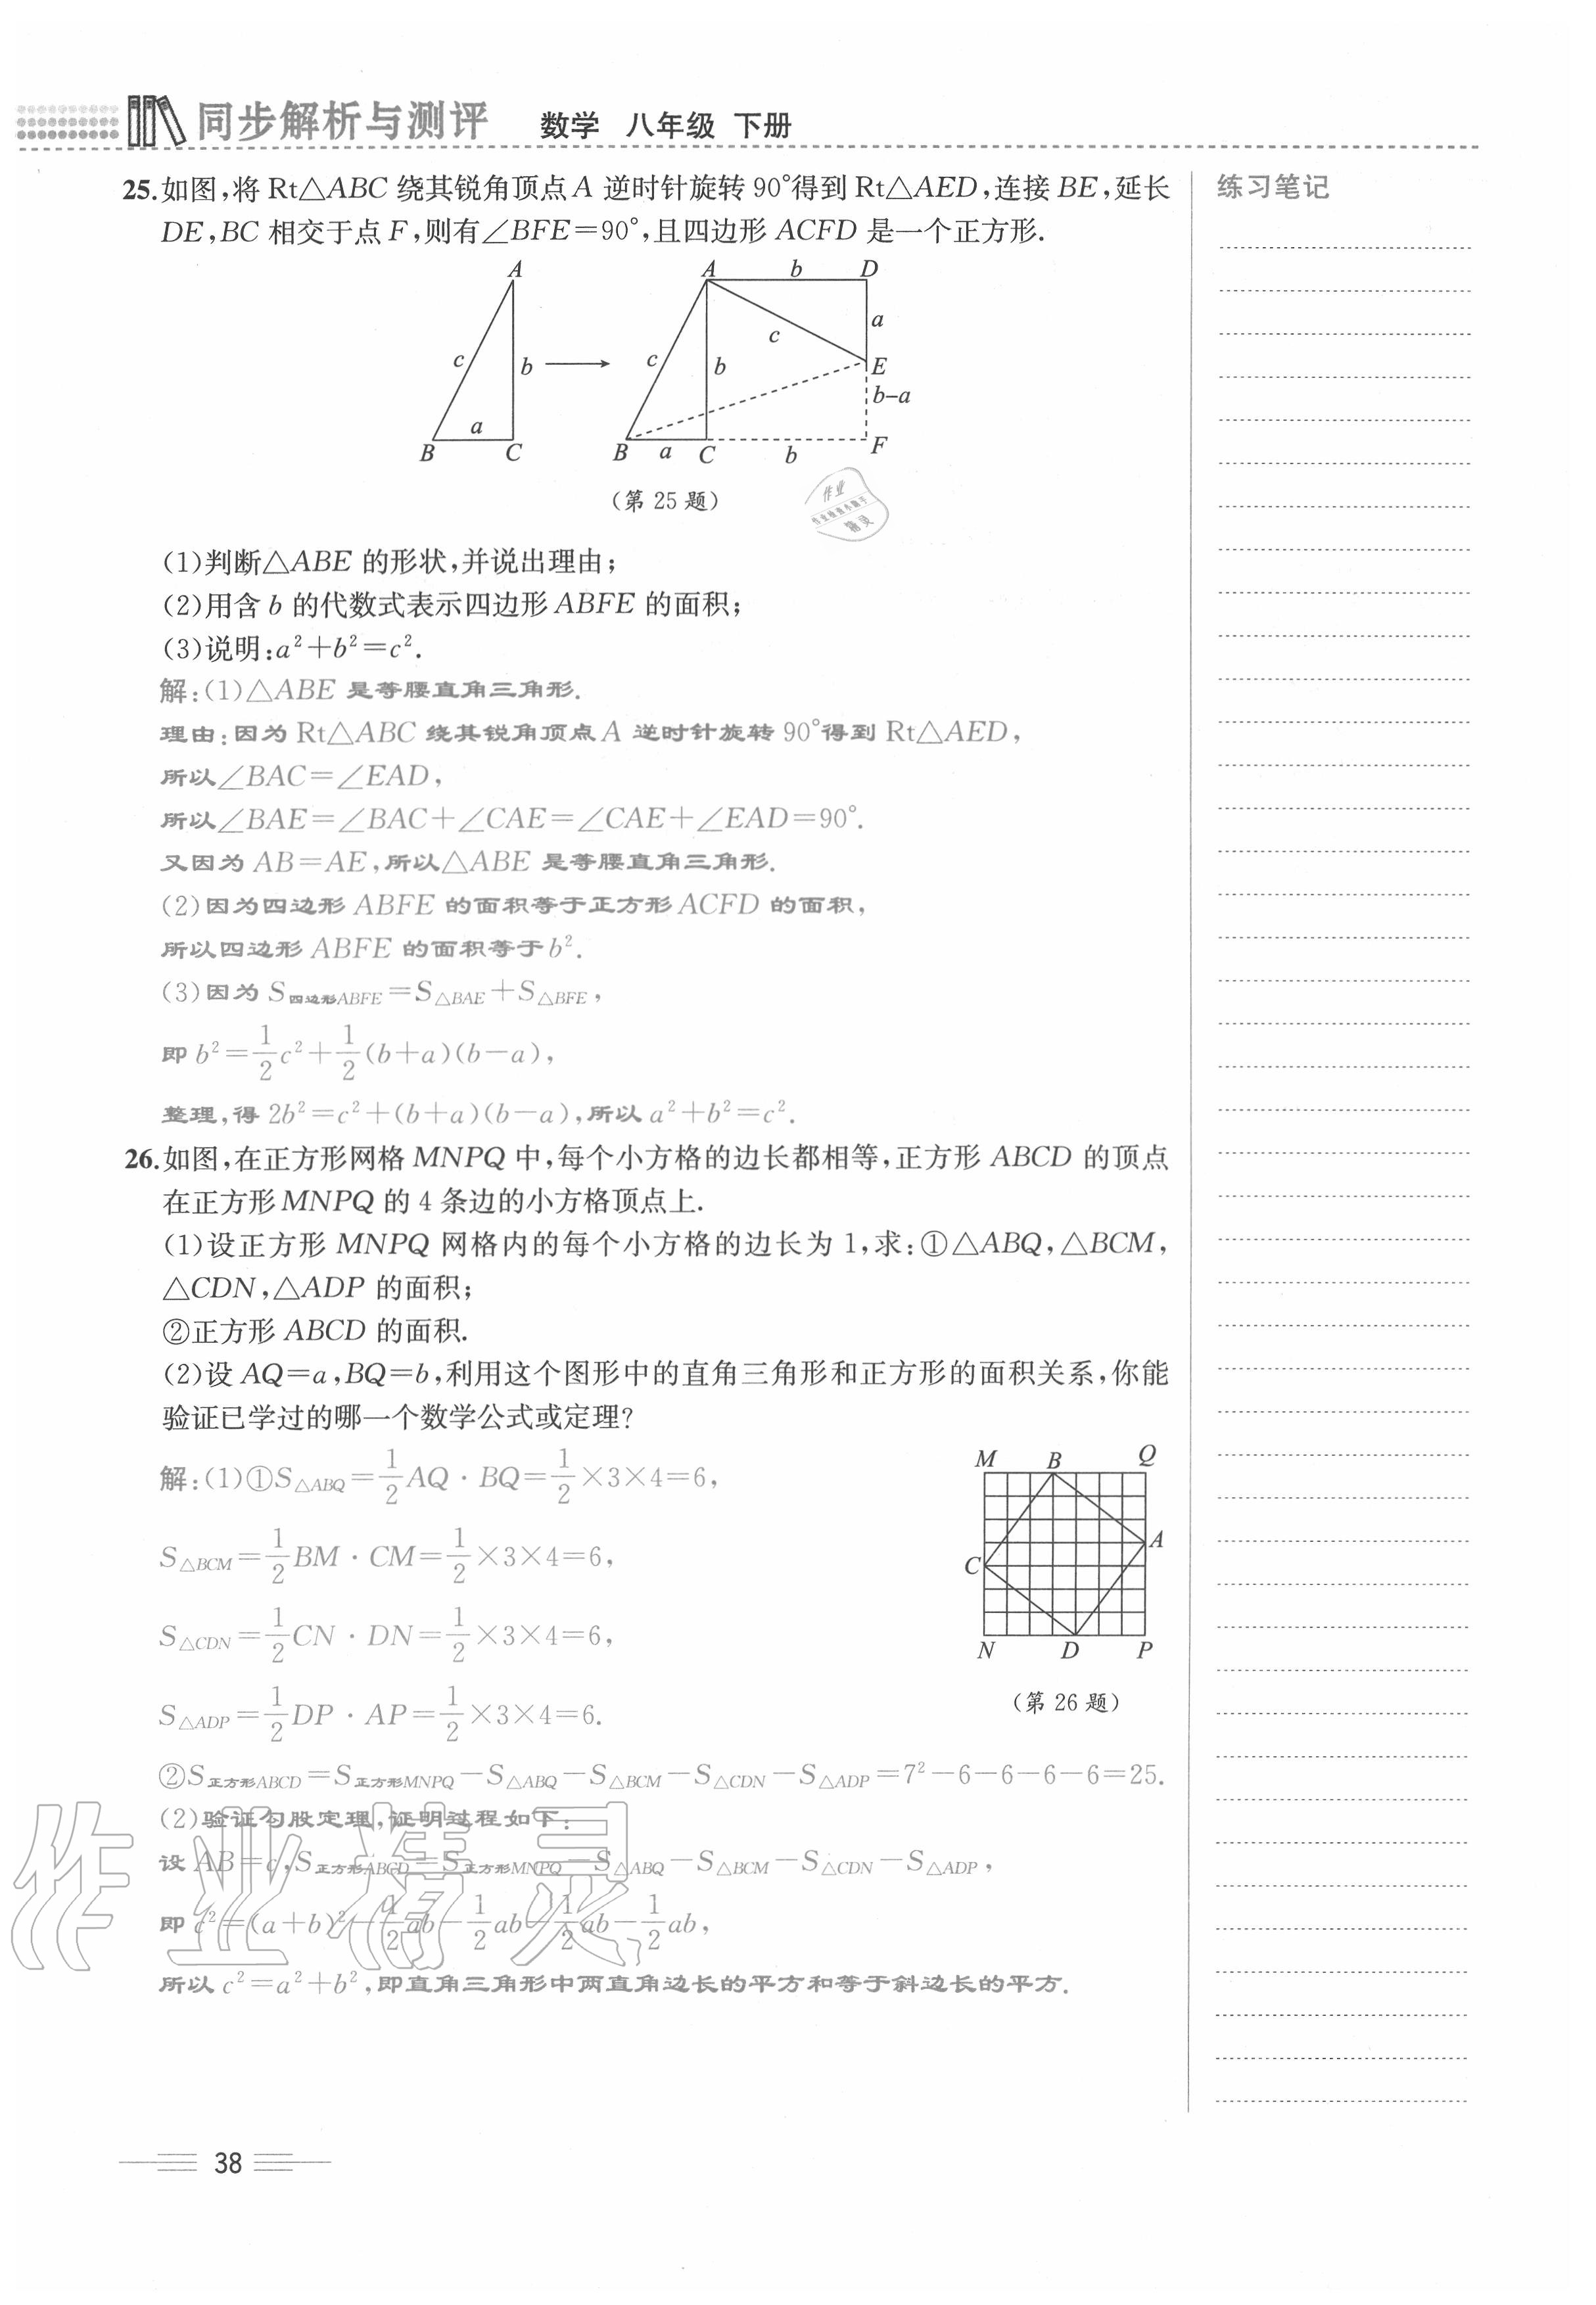 同步解析与测评 数学 八年级 下册
25.如图,将 Rt△ABC 绕其锐角顶点A 逆时针旋转 90°得到 Rt△AED,连接 BE,延长
DE,BC 相交于点 F,则有∠BFE=90°,且四边形 ACFD 是一个正方形.
A
c
b
a
B
C
A
b
D
a
c
c
b
E
b-a
B
a
C
b
F
(第 25 题)
作业
作业检查小助手
精灵
(1)判断△ABE 的形状,并说出理由;
(2)用含 b 的代数式表示四边形 ABFE 的面积;
(3)说明:a²+b²=c².
解:(1)△ABE 是等腰直角三角形.
理由:因为 Rt△ABC 绕其锐角顶点 A 逆时针旋转 90°得到 Rt△AED,
所以∠BAC=∠EAD,
所以∠BAE=∠BAC+∠CAE=∠CAE+∠EAD=90°.
又因为 AB=AE,所以△ABE 是等腰直角三角形.
(2)因为四边形 ABFE 的面积等于正方形 ACFD 的面积,
所以四边形 ABFE 的面积等于 b².
(3)因为 S四边形ABFE=S△BAE+S△BFE,
即 b²=1/2c²+1/2(b+a)(b-a),
整理,得 2b²=c²+(b+a)(b-a),所以 a²+b²=c².
26.如图,在正方形网格 MNPQ 中,每个小方格的边长都相等,正方形 ABCD 的顶点
在正方形 MNPQ 的 4 条边的小方格顶点上.
(1)设正方形 MNPQ 网格内的每个小方格的边长为 1,求:①△ABQ,△BCM,
△CDN,△ADP 的面积;
②正方形 ABCD 的面积.
(2)设 AQ=a,BQ=b,利用这个图形中的直角三角形和正方形的面积关系,你能
验证已学过的哪一个数学公式或定理?
解:(1)①S△ABQ=1/2AQ·BQ=1/2×3×4=6,
S△BCM=1/2BM·CM=1/2×3×4=6,
S△CDN=1/2CN·DN=1/2×3×4=6,
S△ADP=1/2DP·AP=1/2×3×4=6.
M
B
Q
A
C
N
D
P
(第 26 题)
②S正方形ABCD=S正方形MNPQ-S△ABQ-S△BCM-S△CDN-S△ADP=7²-6-6-6-6=25.
(2)验证勾股定理,证明过程如下:
设 AB=c,S正方形ABCD=S正方形MNPQ-S△ABQ-S△BCM-S△CDN-S△ADP,
即 c²=(a+b)²-1/2ab-1/2ab-1/2ab-1/2ab,
所以 c²=a²+b²,即直角三角形中两直角边长的平方和等于斜边长的平方.
作业精灵
练习笔记
38